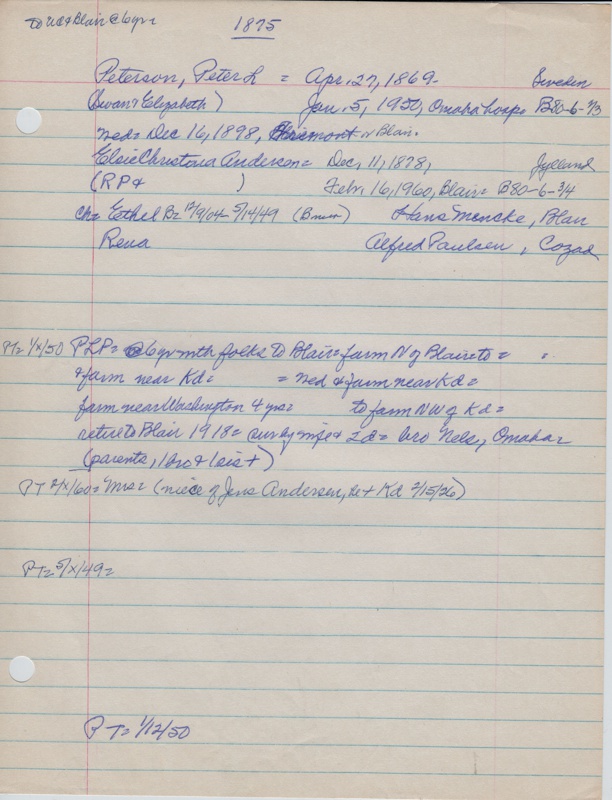 To US & Blair @ 6 yr = 1875
Peterson, Peter L = Apr. 27, 1869 - Sweden
(Swan & Elizabeth) Jan. 5, 1950, Omaha hosp = B80-6-1/3
wed = Dec 16, 1898, or Blair.
Elsie Christina Andersen = Dec, 11, 1878, Jylland
(RP & ) Febr. 16, 1960, Blair = B80-6-3/4
Ch = Ethel B = 12/9/04 - 5/14/49 (Bmm) Hans Mencke, Blair
Rena Alfred Paulsen, Cozad
PT = 1/X/50 PLP = @ 6 yr with folks to Blair = farm N of Blair = to =
& farm near Kd = = wed & farm near Kd =
farm near Washington 4 yrs = to farm NW of Kd =
retire to Blair 1918 = surv by wife & 2 d = bro Nels, Omaha =
(parents, 1 bro & 1 sis +)
PT 2/X/60 = Mrs = (niece of Jens Andersen, Kd 2/15/26)
PT = 5/X/49 =
PT = 1/12/50